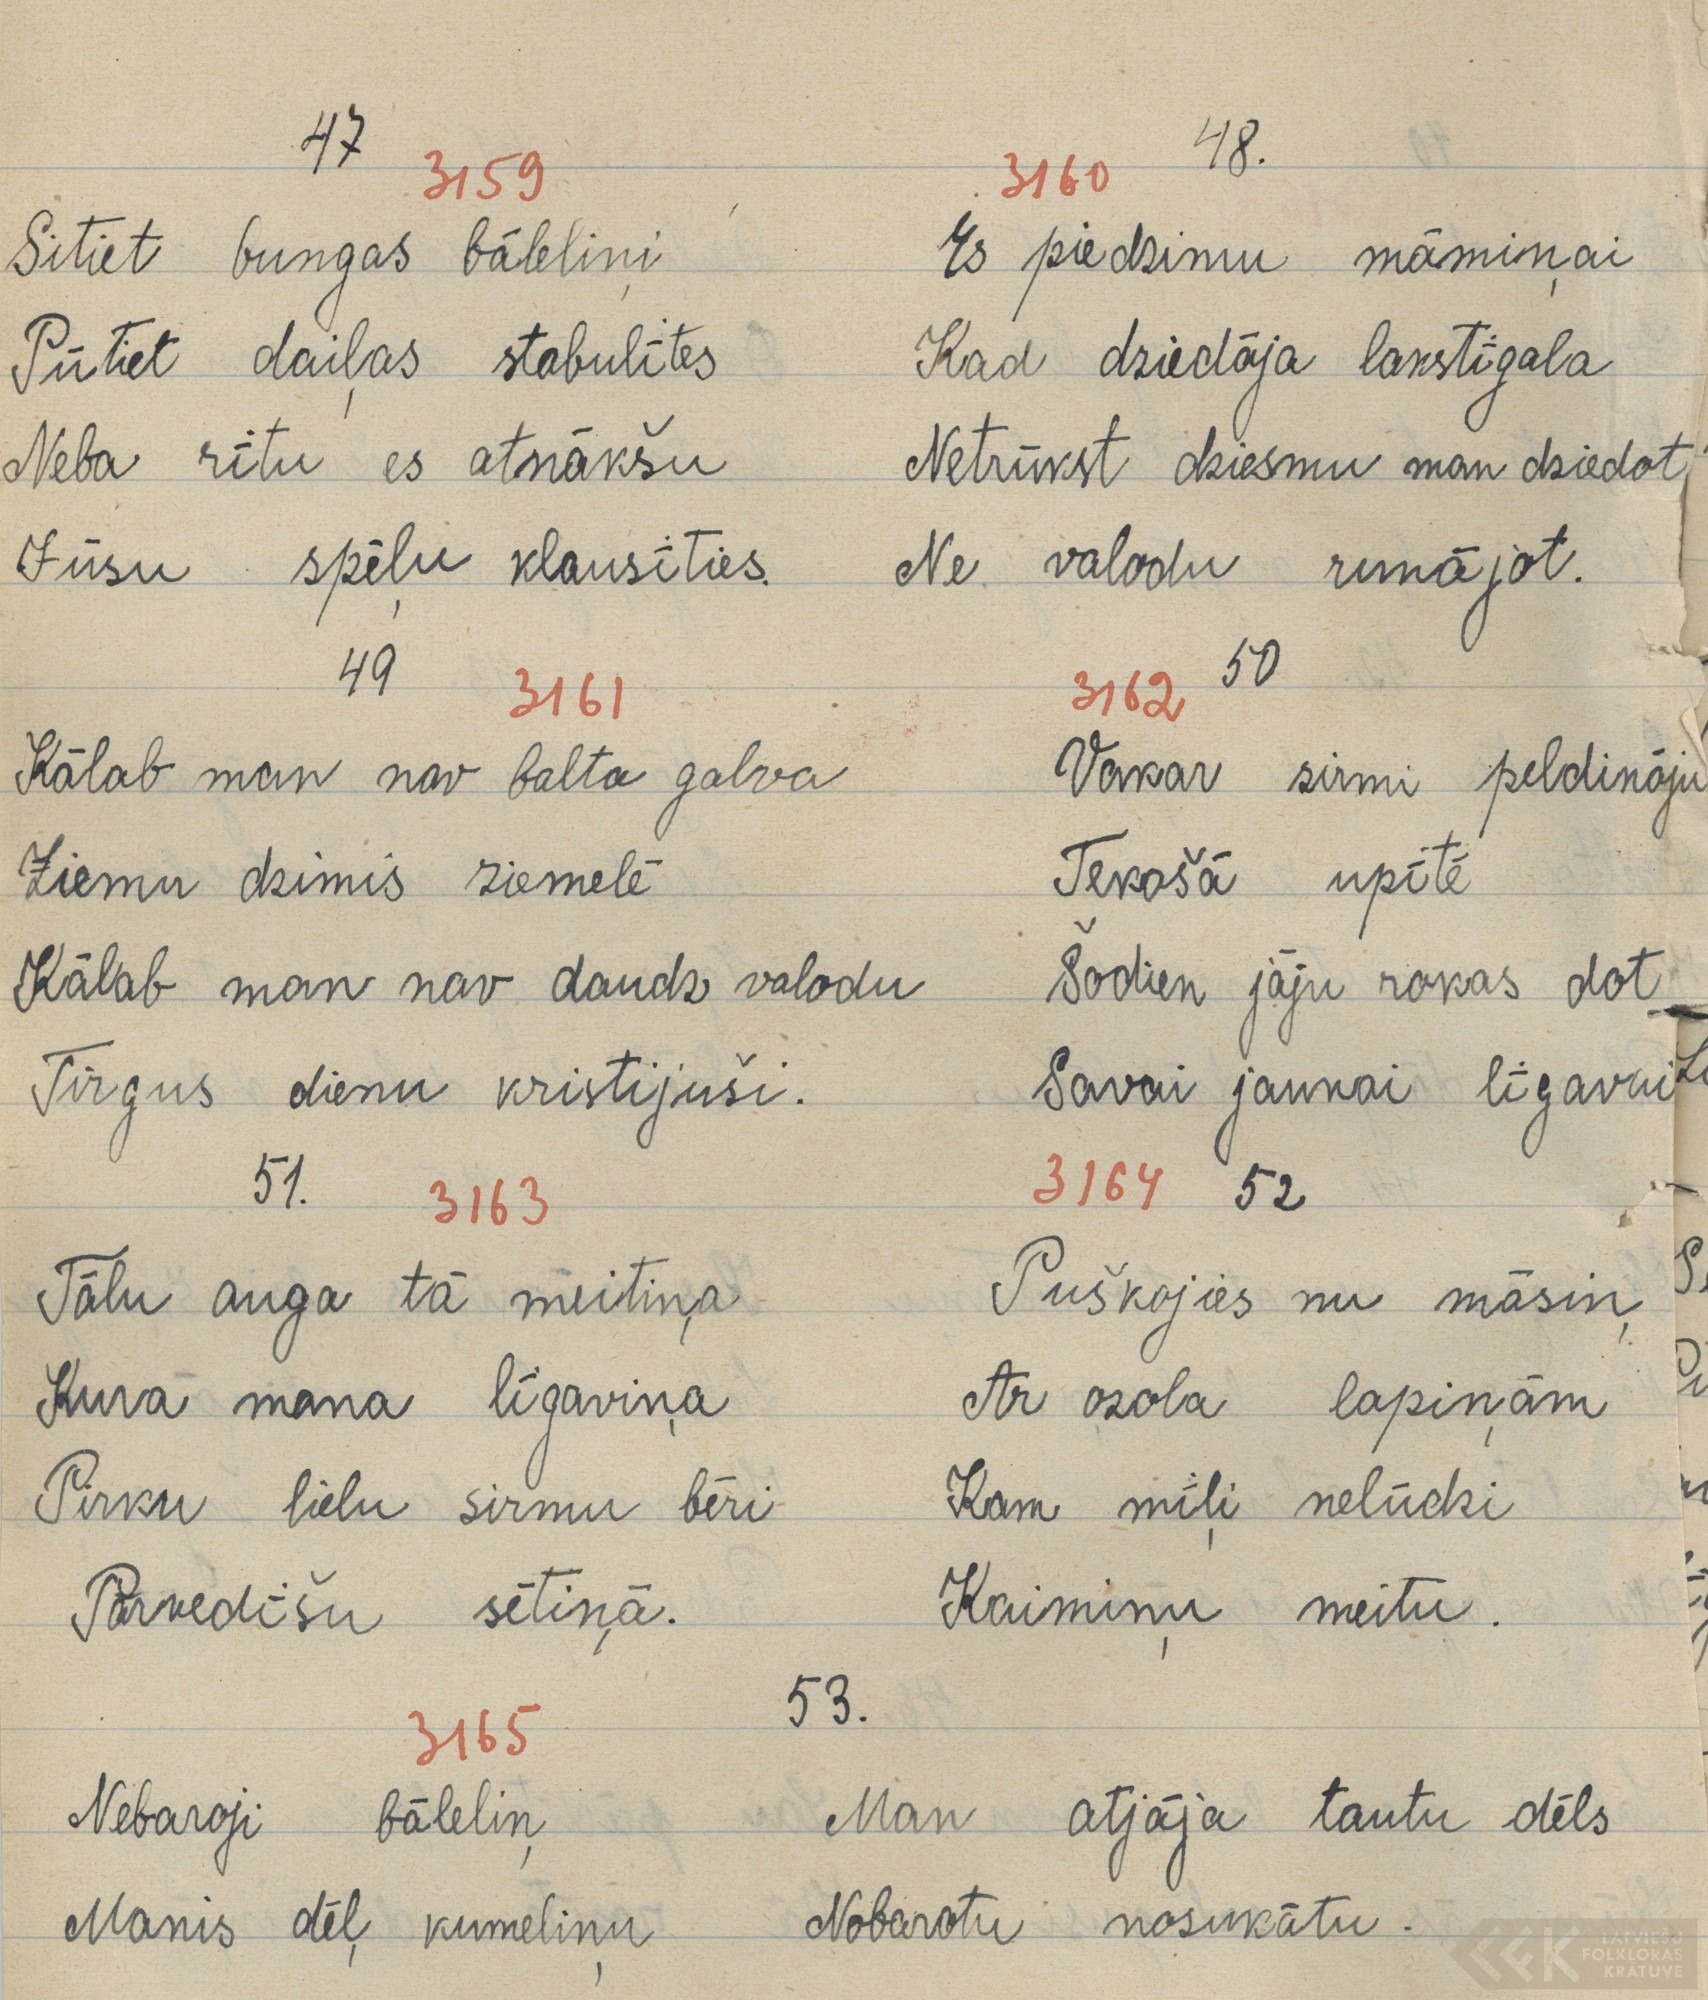 47
3159
Sitiet bungas bāleliņi
Pūtiet daiļas stabulītes
Neba rītu es atnākšu
Jūsu spēļu klausīties.
48.
3160
Es piedzimu māmiņai
Kad dziedāja lakstīgala
Netrūkst dziesmu man dziedot
Ne valodu runājot.
49
3161
Kālab man nav balta galva
Ziemu dzimis ziemelē
Kālab man nav daudz valodu
Tirgus dienu kristijuši.
50
3162
Vakar sirmi peldināju
Tekošā upītē
Šodien jāju rokas dot
Savai jaukai līgavai
51.
3163
Tālu auga tā meitiņa
Kura mana līgaviņa
Pirku lielu sirmu bēri
Pārvedīšu sētiņā.
52
3164
Puškojies nu māsiņ
Ar ozola lapiņām
Kam mīļi nelūdzi
Kaimiņu meitu.
53.
3165
Nebaroji bāleliņ
Manis dēļ kumeliņu
Man atjāja tautu dēls
Nobarotu nosukātu.
LATVIEŠU
FOLKLORAS
KRĀTUVE